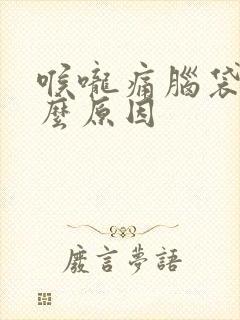 喉嚨痛腦袋
麼原因
廢言夢語